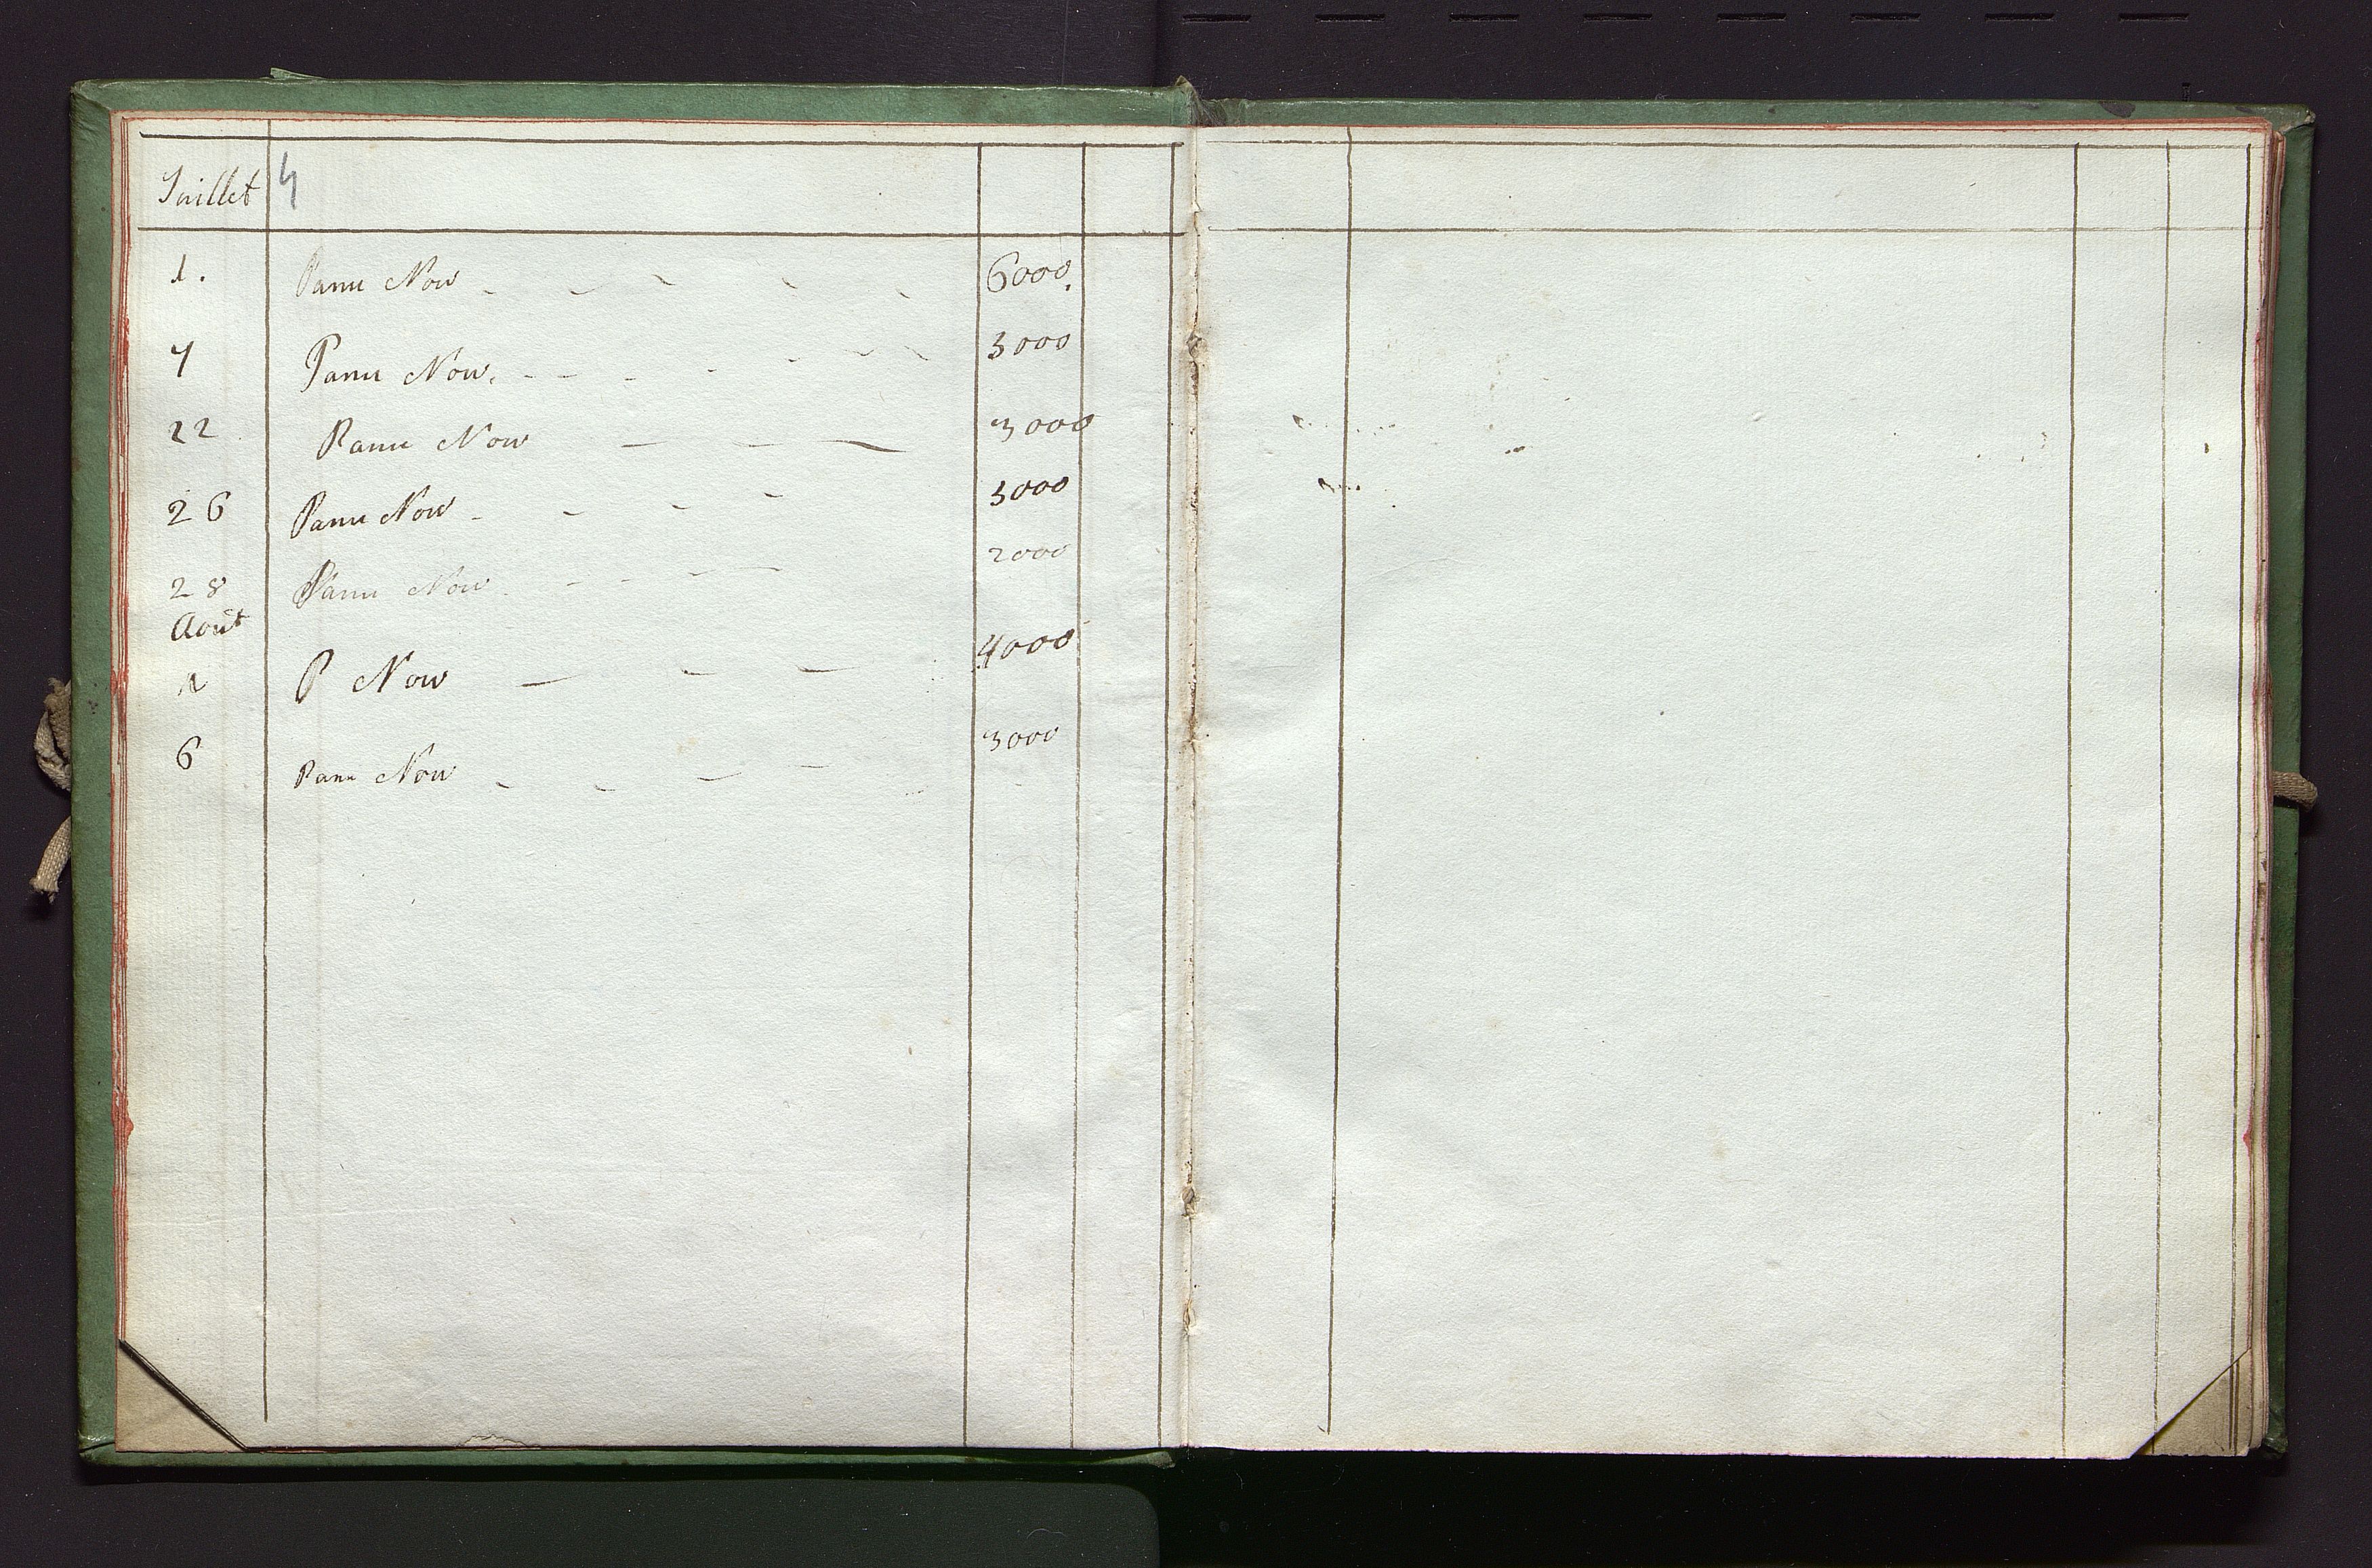 Juillet 4
1. Panu Now 6000.
7 Panu Now. 3000
22 Panu Now 3000
26 Panu Now 3000
28 Panu Now 2000
Août
1 P Now 4000
6 Panu Now 3000